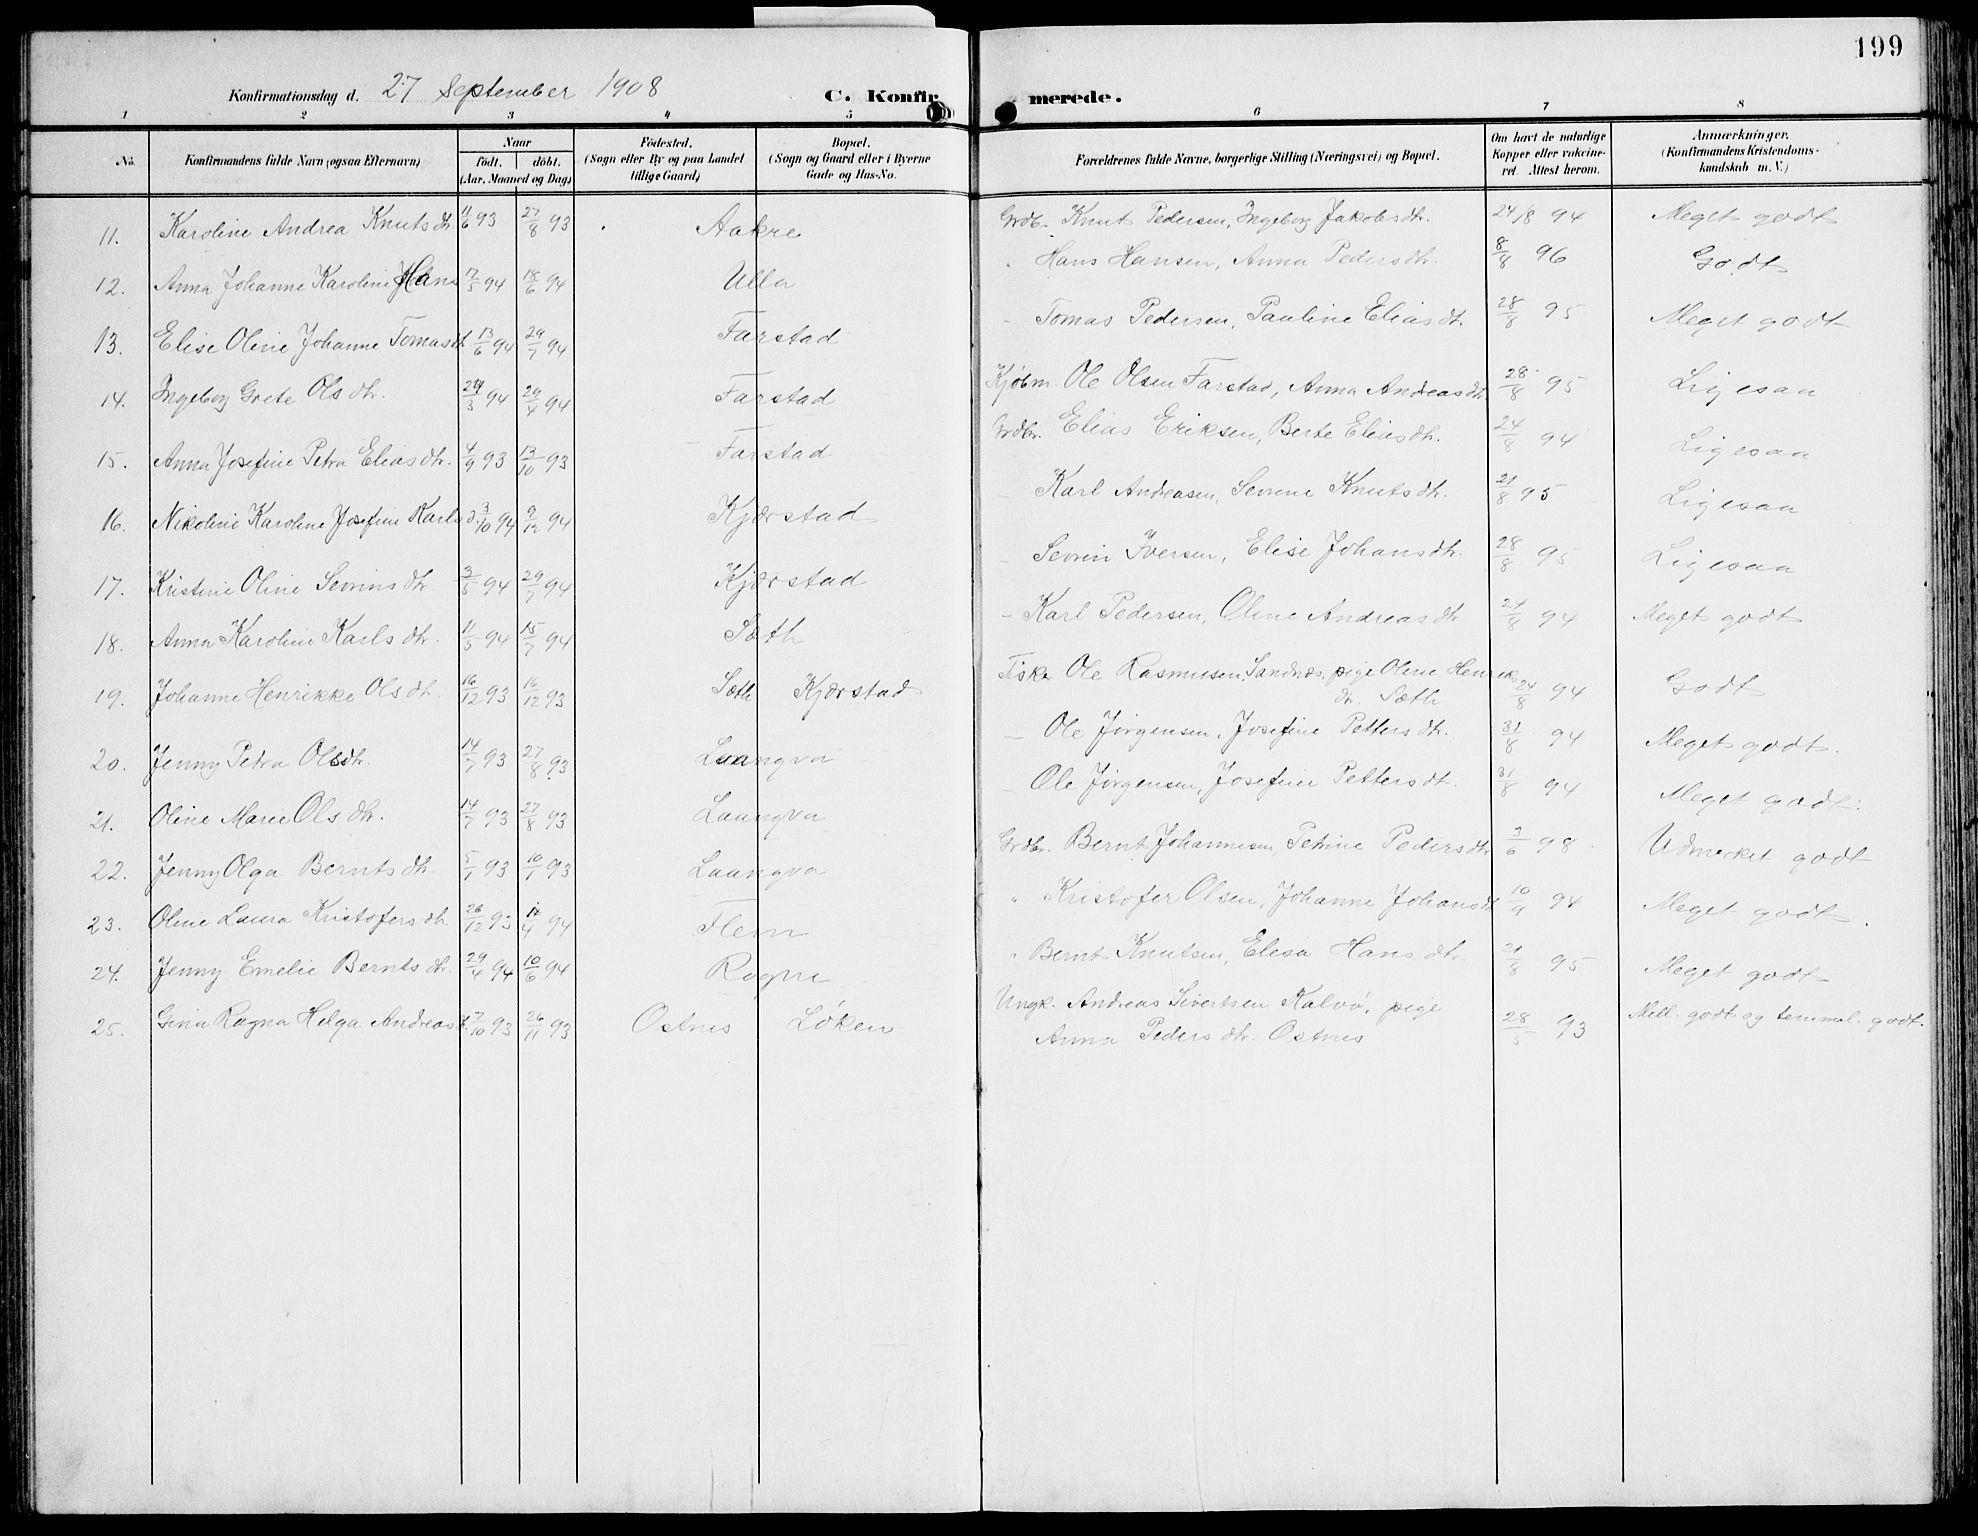 199
Konfirmationsdag d. 27 September 1908 C. Konfir merede.
1 2 3 4 5 6 7 8
No. Konfirmandens fulde Navn (ogsaa Efternavn) Naar födt. döbt. (Aar, Maaned og Dag) Födested. (Sogn eller By og paa Landet tillige Gaard) Bopæl. (Sogn og Gaard eller i Byerne Gade og Hus-No. Forældrenes fulde Navne, borgerlige Stilling (Næringsvei) og Bopæl. Om havt de naturlige Kopper eller vakcineret. Attest herom. Anmærkninger. (Konfirmandens Kristendomskundskab m. V.)
11. Karoline Andrea Knutsdtr. 11/6 93 27/8 93 Aakre Grdbr. Knut Pedersen, Ingeborg Jakobsdtr. 24/8 94 Meget godt
12. Anna Johanne Karoline Hans 17/5 94 18/6 94 Ulla Hans Hansen, Anna Pedersdtr. 8/8 96 Godt
13. Elise Oline Johanne Tomasdt 13/6 94 29/7 94 Farstad - Tomas Pedersen, Pauline Eliasdt. 28/8 95 Meget godt
14. Ingeborg Grete Olsdtr. /3 94 29/4 94 Farstad Kjøbm. Ole Olsen Farstad, Anna Andreasdtr 28/8 95 Ligesaa
15. Anna Josefine Petra Eliasdtr. 4/9 93 13/10 93 Farstad Grdbr. Elias Eriksen, Berte Eliasdtr. 24/8 94 Ligesaa
16. Nikoline Karoline Josefine Karlsd 3/10 94 9/12 94 Kjærstad - Karl Andreasen, Sevrine Knutsdtr. 21/8 95 Ligesaa
17. Kristine Oline Sevrinsdtr 3/5 94 29/7 94 Kjærstad - Sevrin Iversen, Elise Johansdtr. 28/8 95 Ligesaa
18. Anna Karoline Karlsdtr. 11/5 94 15/7 94 Sæth - Karl Pedersen, Oline Andreasdtr 24/8 94 Meget godt
19. Johanne Henrikke Olsdtr. 16/12 93 16/12 93 Sæth Kjærstad Fisker Ole Rasmusen Sandnæs, pige Oline Henriks
dtr. Sæth 24/8 94 Godt
20. Jenny Petra Olsdtr. 14/7 93 27/8 93 Laangva - Ole Jørgensen, Josefine Pettersdtr. 31/8 94 Meget godt.
21. Oline Marie Olsdtr. 14/7 93 27/8 93 Laangva - Ole Jørgensen, Josefine Pettersdtr. 31/8 94 Meget godt.
22. Jenny Olga Berntsdtr. 5/1 93 10/1 93 Laangva Grdbr. Bernt Johannesen, Petrine Pedersdtr 3/6 98 Udmerket godt
23. Oline Laura Kristofersdtr. 26/12 93 /4 94 Flem " Kristofer Olsen, Johanne Johansdt 10/9 94 Meget godt.
24. Jenny Emelie Berntsdtr. 29/4 94 10/6 94 Rogne " Bernt Knutsen, Elisa Hansdtr. 21/8 95 Meget godt
25. Gina Ragna Helga Andreasd. 7/10 93 26/11 93 Ostnes Løken Ungk. Andreas Sivertsen Kalvø, pige
Anna Pedersdtr. Ostnes 28/5 93 Mell. godt og temmel. godt.